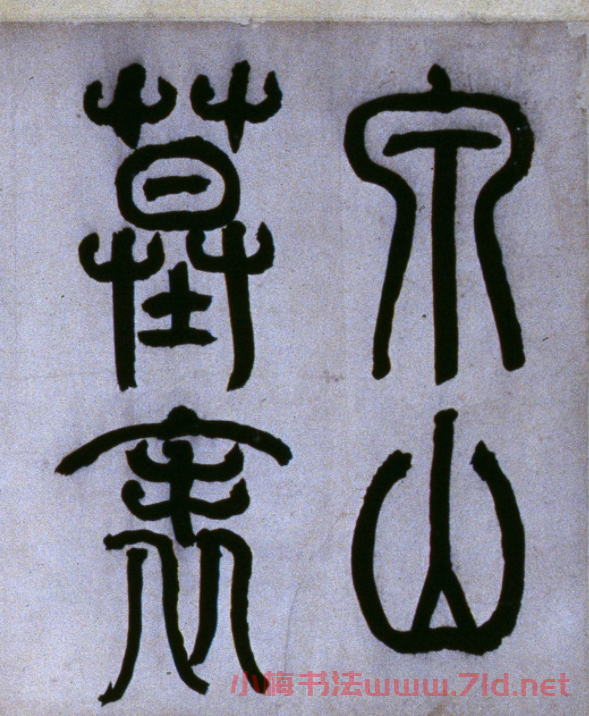 泉山
墓表
小梅书法www.7ld.net